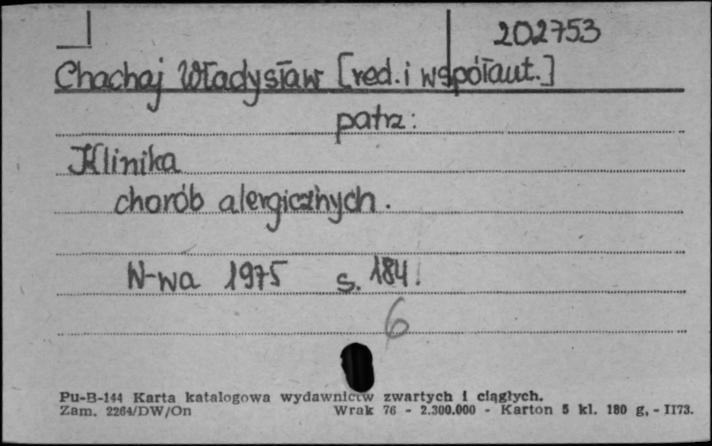 202753
Chachaj Władysław [red. i współaut.]
patrz:
Klinika
chorób alergicznych.
W-wa 1975 s. 184.
6
Pu-B-144 Karta katalogowa wydawnictw zwartych i ciągłych.
Zam. 2264/DW/On Wrak 76 - 2.300.000 - Karton 5 kl. 180 g, - II73.